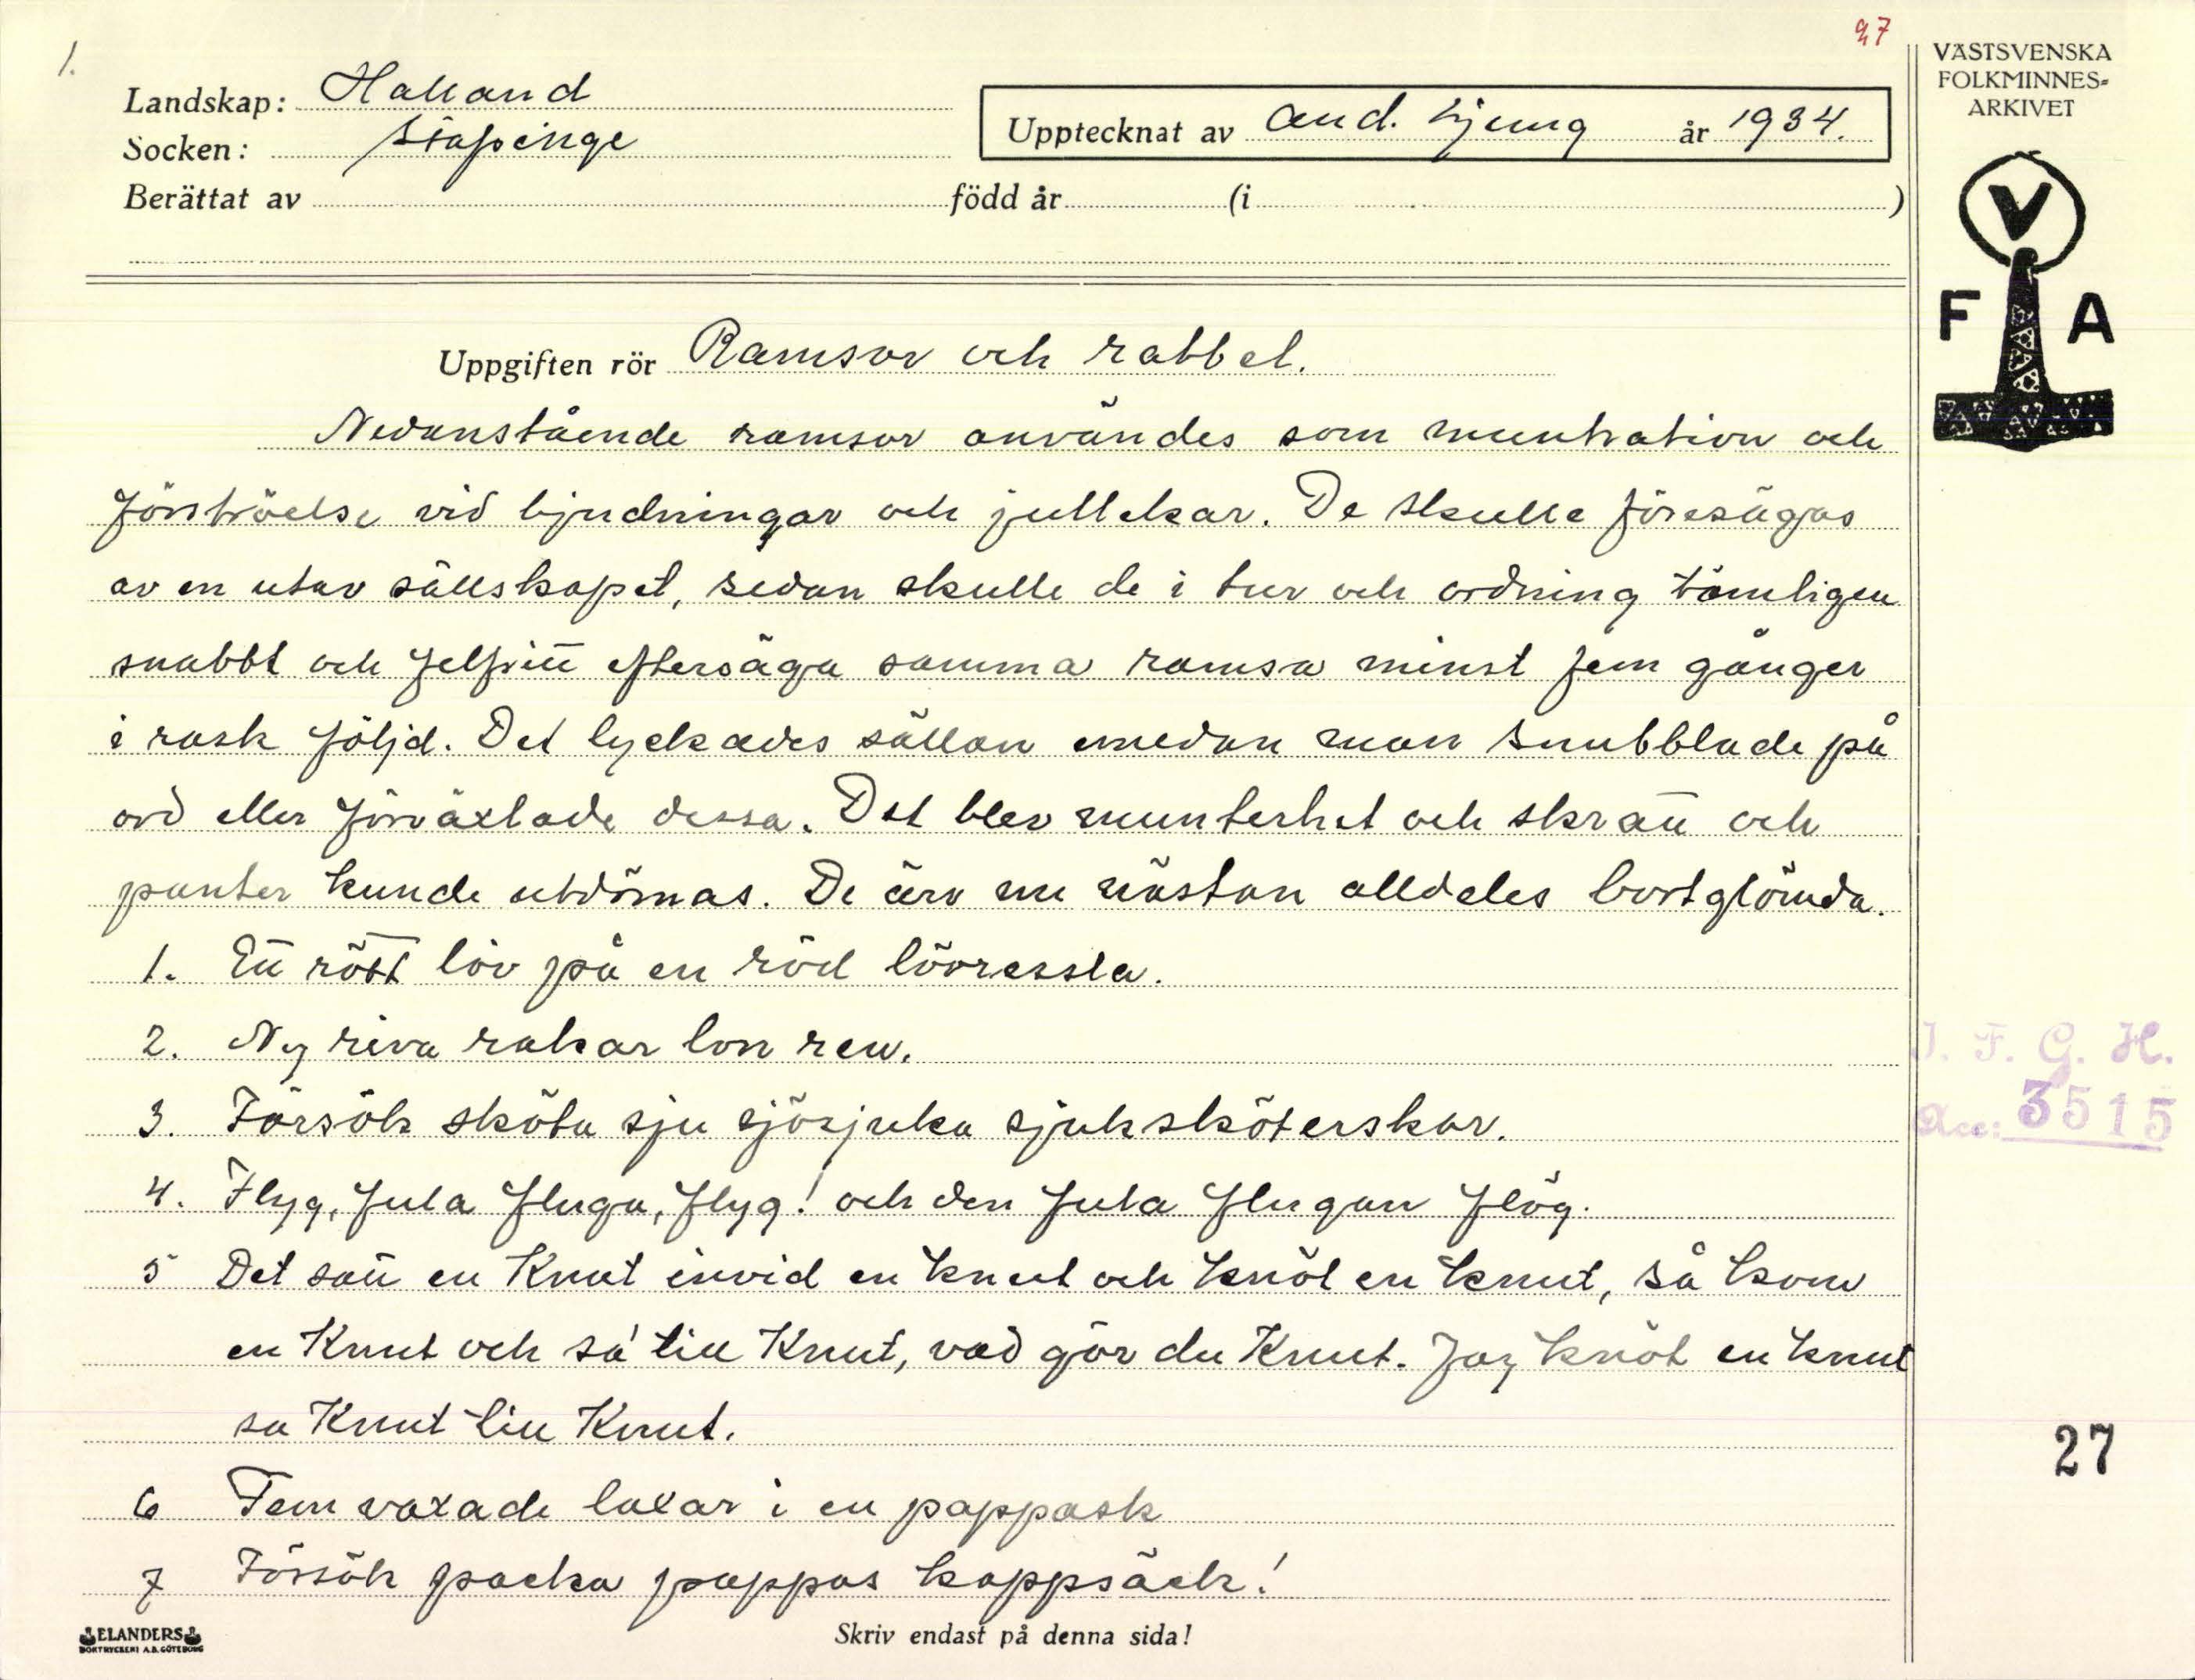 1.
27
VÄSTSVENSKA
FOLKMINNES=
ARKIVET
Landskap: Halland
Socken: Stafsinge
Upptecknat av And. Ljung år 1934.
Berättat av född år (i )
V
F A
Uppgiften rör Ramsor och rabbel.
Nedanstående ramsor användes som muntration och
förströelse vid bjudningar och jullekar. De skulle föresägas
av en utav sällskapet, sedan skulle de i tur och ordning tämligen
snabbt och felfritt eftersäga samma ramsa minst fem gånger
i rask följd. Det lyckades sällan emedan man snubblade på
ord eller förväxlade dessa. Det blev munterhet och skratt och
panter kunde utdömas. De äro nu nästan alldeles bortglömda.
1. Ett rött löv på en röd lövressla.
2. Ny riva rakar lon ren.
3. Försök sköta sju sjösjuka sjuksköterskor.
4. Flyg, fula fluga, flyg! och den fula flugan flög.
5 Det satt en Knut invid en knut och knöt en knut, så kom
en Knut och sa' till Knut, vad gör du Knut. Jag knöt en knut
sa Knut till Knut.
6 Fem vaxade laxar i en pappask
7 Försök packa pappas kappsäck!
I. F. G. H.
Acc: 3515
27
ELANDERS
BOKTRYCKERI A.B. GÖTEBORG
Skriv endast på denna sida!